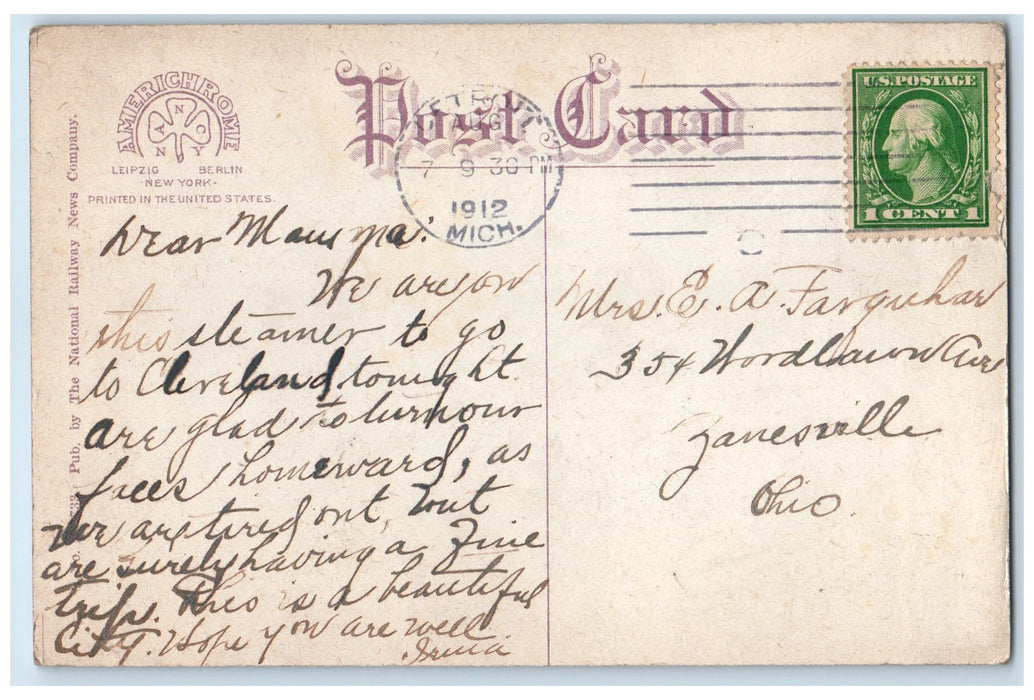 AMERICHROME
A N C O
N Y
LEIPZIG BERLIN
-NEW YORK-
PRINTED IN THE UNITED STATES.
Post Card
DETROIT
AUG
7 9 30 PM
1912
MICH.
U.S. POSTAGE
1 CENT 1
Pub. by The National Railway News Company.
Dear Mamma:
We are on
this steamer to go
to Cleveland tonight
are glad to turn our
faces homeward, as
we are tired out, but
are surely having a fine
trip. This is a beautiful
City. Hope you are well
Mrs. E. A. Farquhar
354 Woodlawn Ave
Zanesville
Ohio.